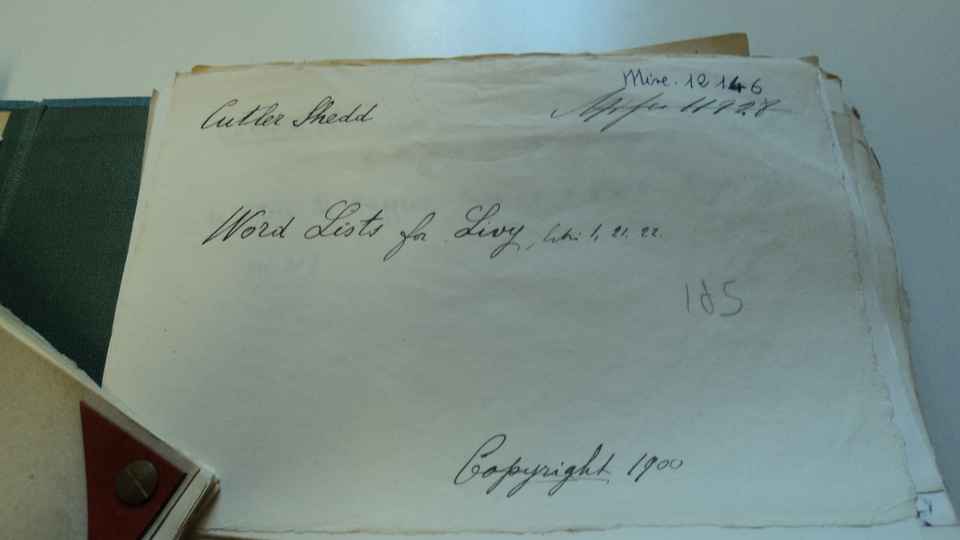 Misc. 12146
Cutler Shedd
11928
Word Lists for Livy, Libri 1, 21. 22.
185
Copyright 1900